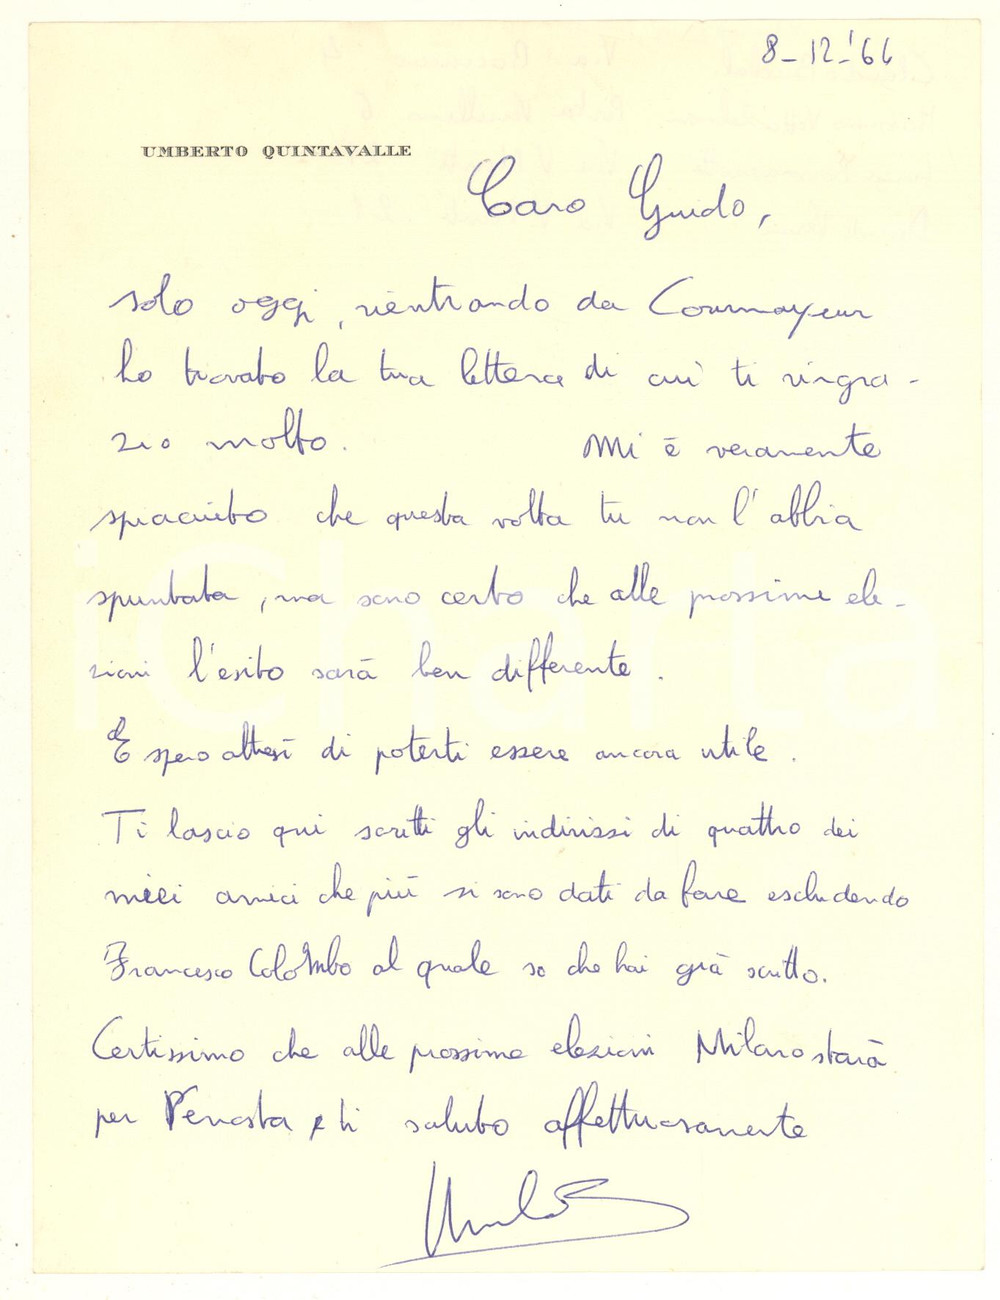 8-12-'66
UMBERTO QUINTAVALLE
Caro Guido,
solo oggi, rientrando da Courmayeur
ho trovato la tua lettera di cui ti ringra-
zio molto. Mi è veramente
spiaciuto che questa volta tu non l'abbia
spuntata, ma sono certo che alle prossime ele-
zioni l'esito sarà ben differente.
E spero altresì di poterti essere ancora utile.
Ti lascio qui scritti gli indirizzi di quattro dei
miei amici che più si sono dati da fare escludendo
Francesco Colombo al quale so che hai già scritto.
Certissimo che alle prossime elezioni Milano starà
per Venosta e ti saluto affettuosamente
Umberto
iCharta